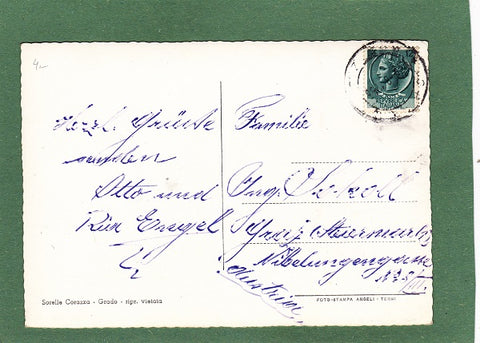 4.-
Herzl. Grüße
senden
Otto und
Engel
Familie
Ing.
Graz, Steiermark
Nibelungengasse
Austria
Sorelle Corazza - Grado - ripr. vietata
FOTO-STAMPA ANGELI - TERNI